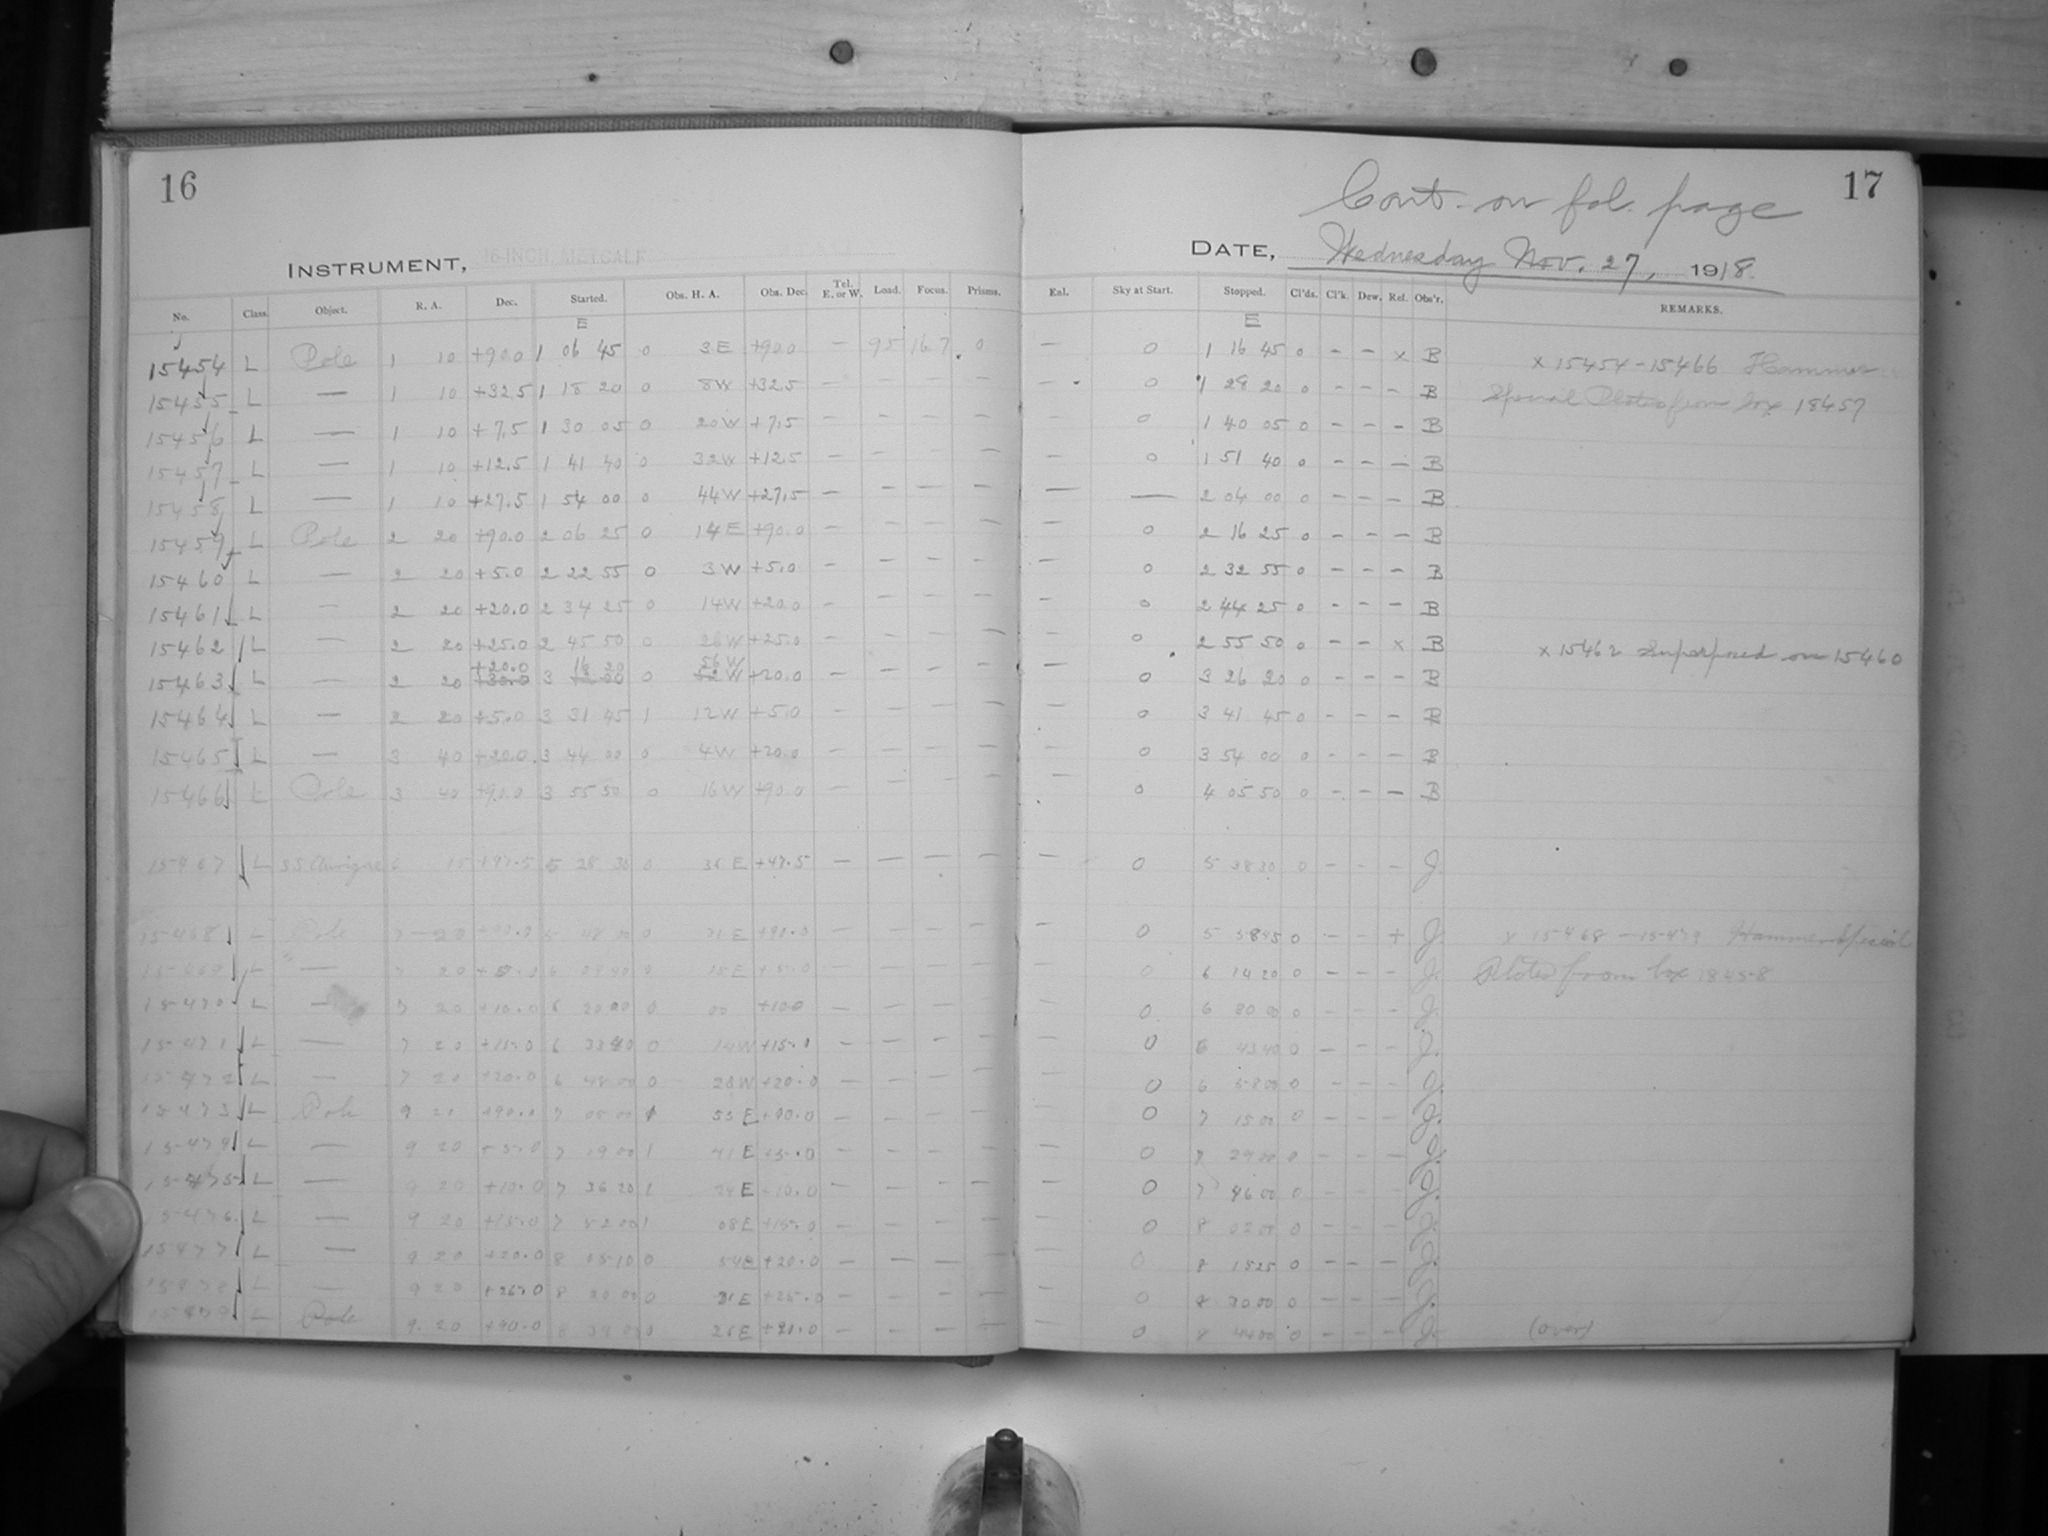 16
INSTRUMENT, 16-INCH METCALF
No. Class. Object. R. A. Dec. Started. Obs. H. A. Obs. Dec. Tel. E. or W. Load. Focus. Prisms.
E
15454 L Pole 1 10 +90.0 1 06 45 0 3 E +90.0 — 95 16.7 0
15455 L — 1 10 +32.5 1 18 20 0 8 W +32.5 — — — —
15456 L — 1 10 +7.5 1 30 05 0 20 W +7.5 — — — —
15457 L — 1 10 +12.5 1 41 40 0 32 W +12.5 — — — —
15458 L — 1 10 +27.5 1 54 00 0 44 W +27.5 — — — —
15459 L Pole 2 20 +90.0 2 06 25 0 14 E +90.0 — — — —
15460 L — 2 20 +5.0 2 22 55 0 3 W +5.0 — — — —
15461 L — 2 20 +20.0 2 34 25 0 14 W +20.0 — — — —
15462 L — 2 20 +25.0 2 45 50 0 26 W +25.0 — — — —
+20.0 16 20 56 W
15463 L — 2 20 3 0 +20.0 — — — —
15464 L — 2 20 +5.0 3 31 45 1 12 W +5.0 — — — —
15465 L — 3 40 +20.0 3 44 00 0 4 W +20.0 — — — —
15466 L Pole 3 40 +90.0 3 55 50 0 16 W +90.0 — — — —
15467 L 6 15 +47.5 5 28 30 0 +47.5 — — — —
15468 L Pole 7 20 +90.0 5 48 0 31 E +90.0 — — — —
15469 L — 7 20 +5.0 6 0 15 E +5.0 — — — —
15470 L — 7 20 +10.0 6 20 00 0 00 +10.0 — — — —
15471 L — 7 20 +15.0 6 33 40 0 14 W +15.0 — — — —
15472 L — 7 20 +20.0 6 48 00 0 28 W +20.0 — — — —
15473 L Pole 9 20 +90.0 7 05 00 53 E +90.0 — — — —
15474 L — 9 20 +5.0 7 19 00 1 41 E +5.0 — — — —
15475 L — 9 20 +10.0 7 36 20 1 24 E +10.0 — — — —
15476 L — 9 20 +15.0 7 52 00 1 08 E +15.0 — — — —
15477 L — 9 20 +20.0 8 05 10 0 54 E +20.0 — — — —
15478 L — 9 20 8 20 00 0 E +25.0 — — — —
15479 L Pole 9 20 +90.0 8 0 26 E — — — —
17
Cont. on fol. page
DATE, Wednesday Nov. 27, 1918
Sky at Start. Stopped. Cl'ds. Cl'k. Dew. Rel. Obs'r. REMARKS.
E
— 0 1 16 45 0 — — x B x 15454 – 15466 Hammer
— 0 1 28 20 0 — — — B Special Plates from box 18457
— 0 1 40 05 0 — — — B
— 0 1 51 40 0 — — — B
— — 2 04 00 0 — — — B
— 0 2 16 25 0 — — — B
— 0 2 32 55 0 — — — B
— 0 2 44 25 0 — — — B
— 0 2 55 50 0 — — x B x 15462 Superposed on 15460
— 0 3 26 20 0 — — — B
— 0 3 41 45 0 — — — B
— 0 3 54 00 0 — — — B
— 0 4 05 50 0 — — — B
— 0 5 38 30 0 — — — J.
— 0 5 58 45 0 — — + J. x 15468 – 15479 Hammer Special
— 0 6 14 20 0 — — — J. Plates from box 18458
— 0 6 30 00 0 — — — J.
— 0 6 43 40 0 — — — J.
— 0 6 58 00 0 — — — J.
— 0 7 15 00 0 — — — J.
— 0 7 29 00 0 — — — J.
— 0 7 46 00 0 — — — J.
— 0 8 02 00 0 — — — J.
— 0 8 15 25 0 — — — J.
— 0 8 30 00 0 — — — J.
— 0 8 0 — — — J. (over)